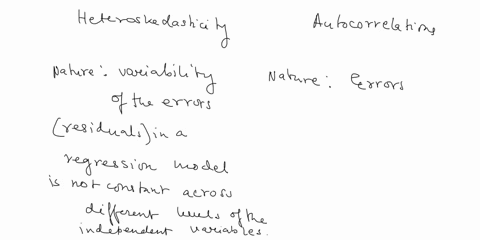 Heteroskedasticity
Autocorrelations
Nature: variability
of the errors
(residuals) in a
regression model
is not constant across
different levels of the
independent variables.
Nature: Errors